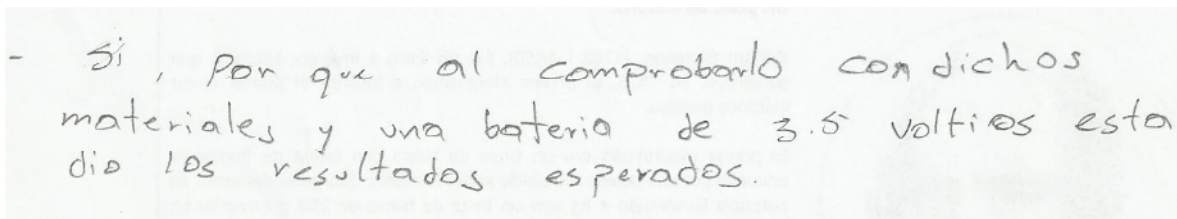 - Si, Por que al comprobarlo con dichos
materiales y una bateria de 3.5 voltios esta
dio los resultados esperados